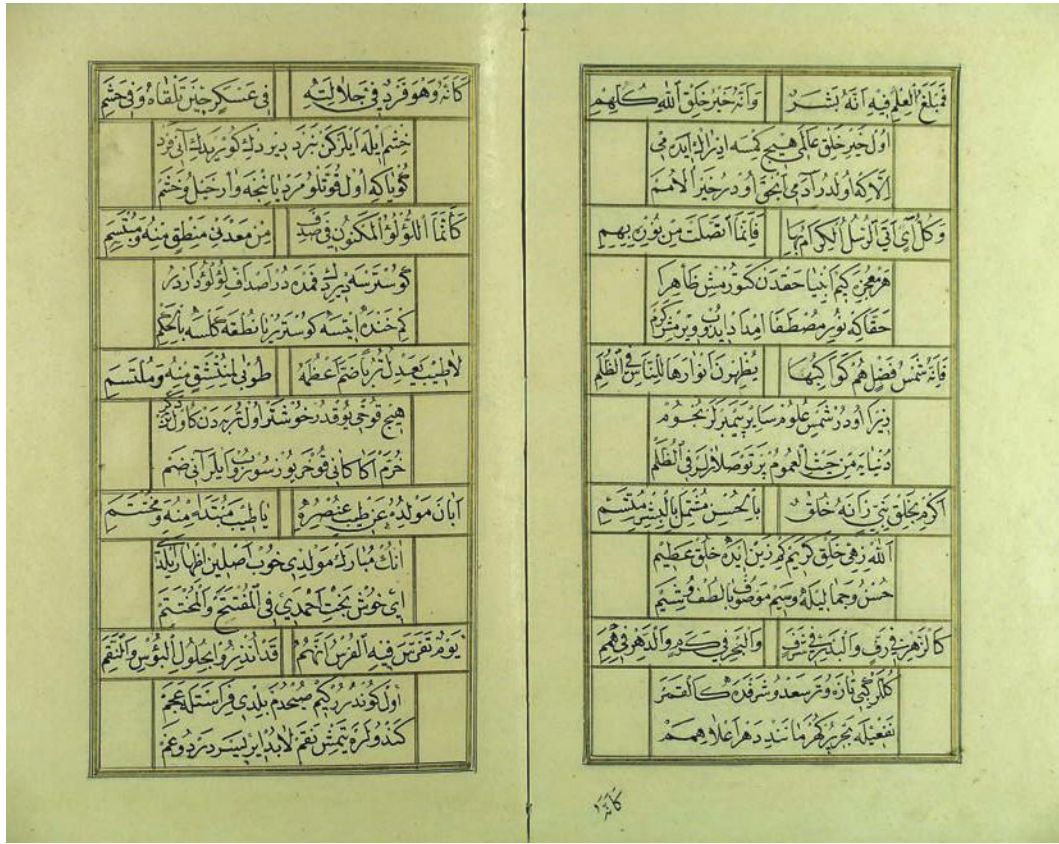 فَمَبْلَغُ الْعِلْمِ فِيهِ اَنَّهُ بَشَرٌ وَاَنَّهُ خَيْرُ خَلْقِ اللّٰهِ كُلِّهِمِ
اول خير خلق عالمى هيچ كيمسه ايدراك ايده مى
الّا كه اولدر آدمى الحق اودر خير الامم
وَكُلُّ آىٍ اَتَى الرُّسْلُ الْكِرَامُ بِهَا فَاِنَّمَا اتَّصَلَتْ مِنْ نُورِهِ بِهِمِ
هر معجزه كيم انبيا حقدن كتورمش ظاهرا
حقا كه نور مصطفا امداد ايدوب ويرمش كرم
فَاِنَّهُ شَمْسُ فَضْلٍ هُمْ كَوَاكِبُهَا يُظْهِرْنَ اَنْوَارَهَا لِلنَّاسِ فِى الظُّلَمِ
زيرا اودر شمس علوم ساير پيمبرلر نجوم
دنيايه من حيث العموم پرتو صلارلر فى الظلم
اَكْرِمْ بِخَلْقِ نَبِىٍّ زَانَهُ خُلُقٌ بِالْحُسْنِ مُشْتَمِلٍ بِالْبِشْرِ مُتَّسِمِ
اللّٰه زهى خلق كريم كم زين ايده خلق عظيم
حسن وجماليله وسيم موصوف بالطف وشيم
كَالزَّهْرِ فِى تَرَفٍ وَالْبَدْرِ فِى شَرَفٍ وَالْبَحْرِ فِى كَرَمٍ وَالدَّهْرِ فِى هِمَمِ
كللر كبى تازه وتر سعد وشرفده كالقمر
نفعيله بحر پر كهر مانند دهر اعلا همم
كَاَنَّهُ
كَاَنَّهُ وَهُوَ فَرْدٌ فِى جَلَالَتِهِ فِى عَسْكَرٍ حِينَ تَلْقَاهُ وَفِى حَشَمِ
خشم ايله ايلركن نبرد دير دك كوريدك آنى فرد
كويا كه اول قوتلو مرد يانجه وار خيل وحشم
كَاَنَّمَا اللُّؤْلُؤُ الْمَكْنُونُ فِى صَدَفٍ مِنْ مَعْدِنَىْ مَنْطِقٍ مِنْهُ وَمُبْتَسِمِ
كوسترسه در اصداف لؤلؤ
كم خنده ايتسه كوسترر يا نطقه كلسه بالحكم
لَا طِيبَ يَعْدِلُ تُرْبًا ضَمَّ اَعْظُمَهُ طُوبَى لِمُنْتَشِقٍ مِنْهُ وَمُلْتَثِمِ
هيچ قوخى يوقدر خوشتر اول تربه دن
خرم اكا كانى قوخر يوز سوروب ايلر آنى ضم
اَبَانَ مَوْلِدُهُ عَنْ طِيبِ عُنْصُرِهِ يَا طِيبَ مُبْتَدَاٍ مِنْهُ وَمُخْتَتَمِ
انك مبارك مولدى خوب اصلين اظهار ايلدى
اى خوش بخت احمدى فى المفتتح والمختتم
يَوْمٌ تَفَرَّسَ فِيهِ الْفُرْسُ اَنَّهُمُ قَدْ اُنْذِرُوا بِحُلُولِ الْبُؤْسِ وَالنِّقَمِ
اول كوندرر كيم صبحدم بلدى فراستله عجم
كندولره يتمش نقم لابد ايريسر درد وغم